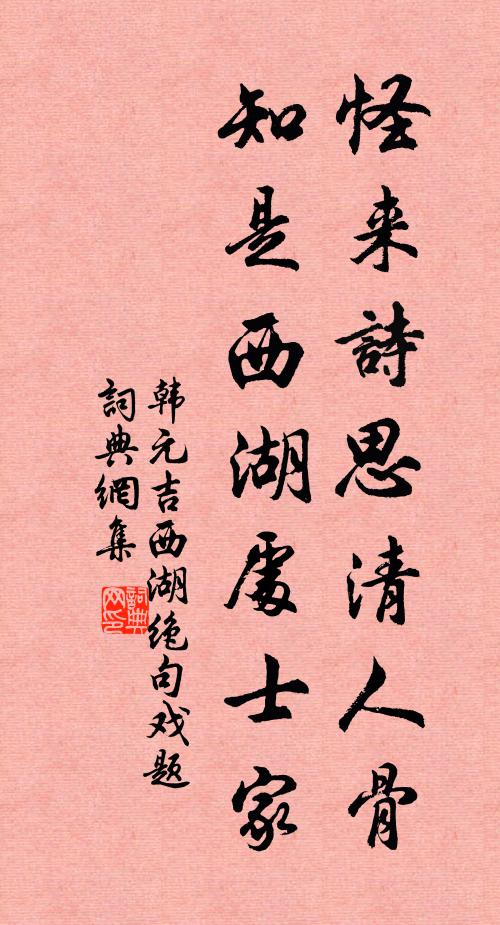 怪来詩思清人骨
知是西湖處士家
韩元吉西湖绝句戏题
詞典網集
詞典网印